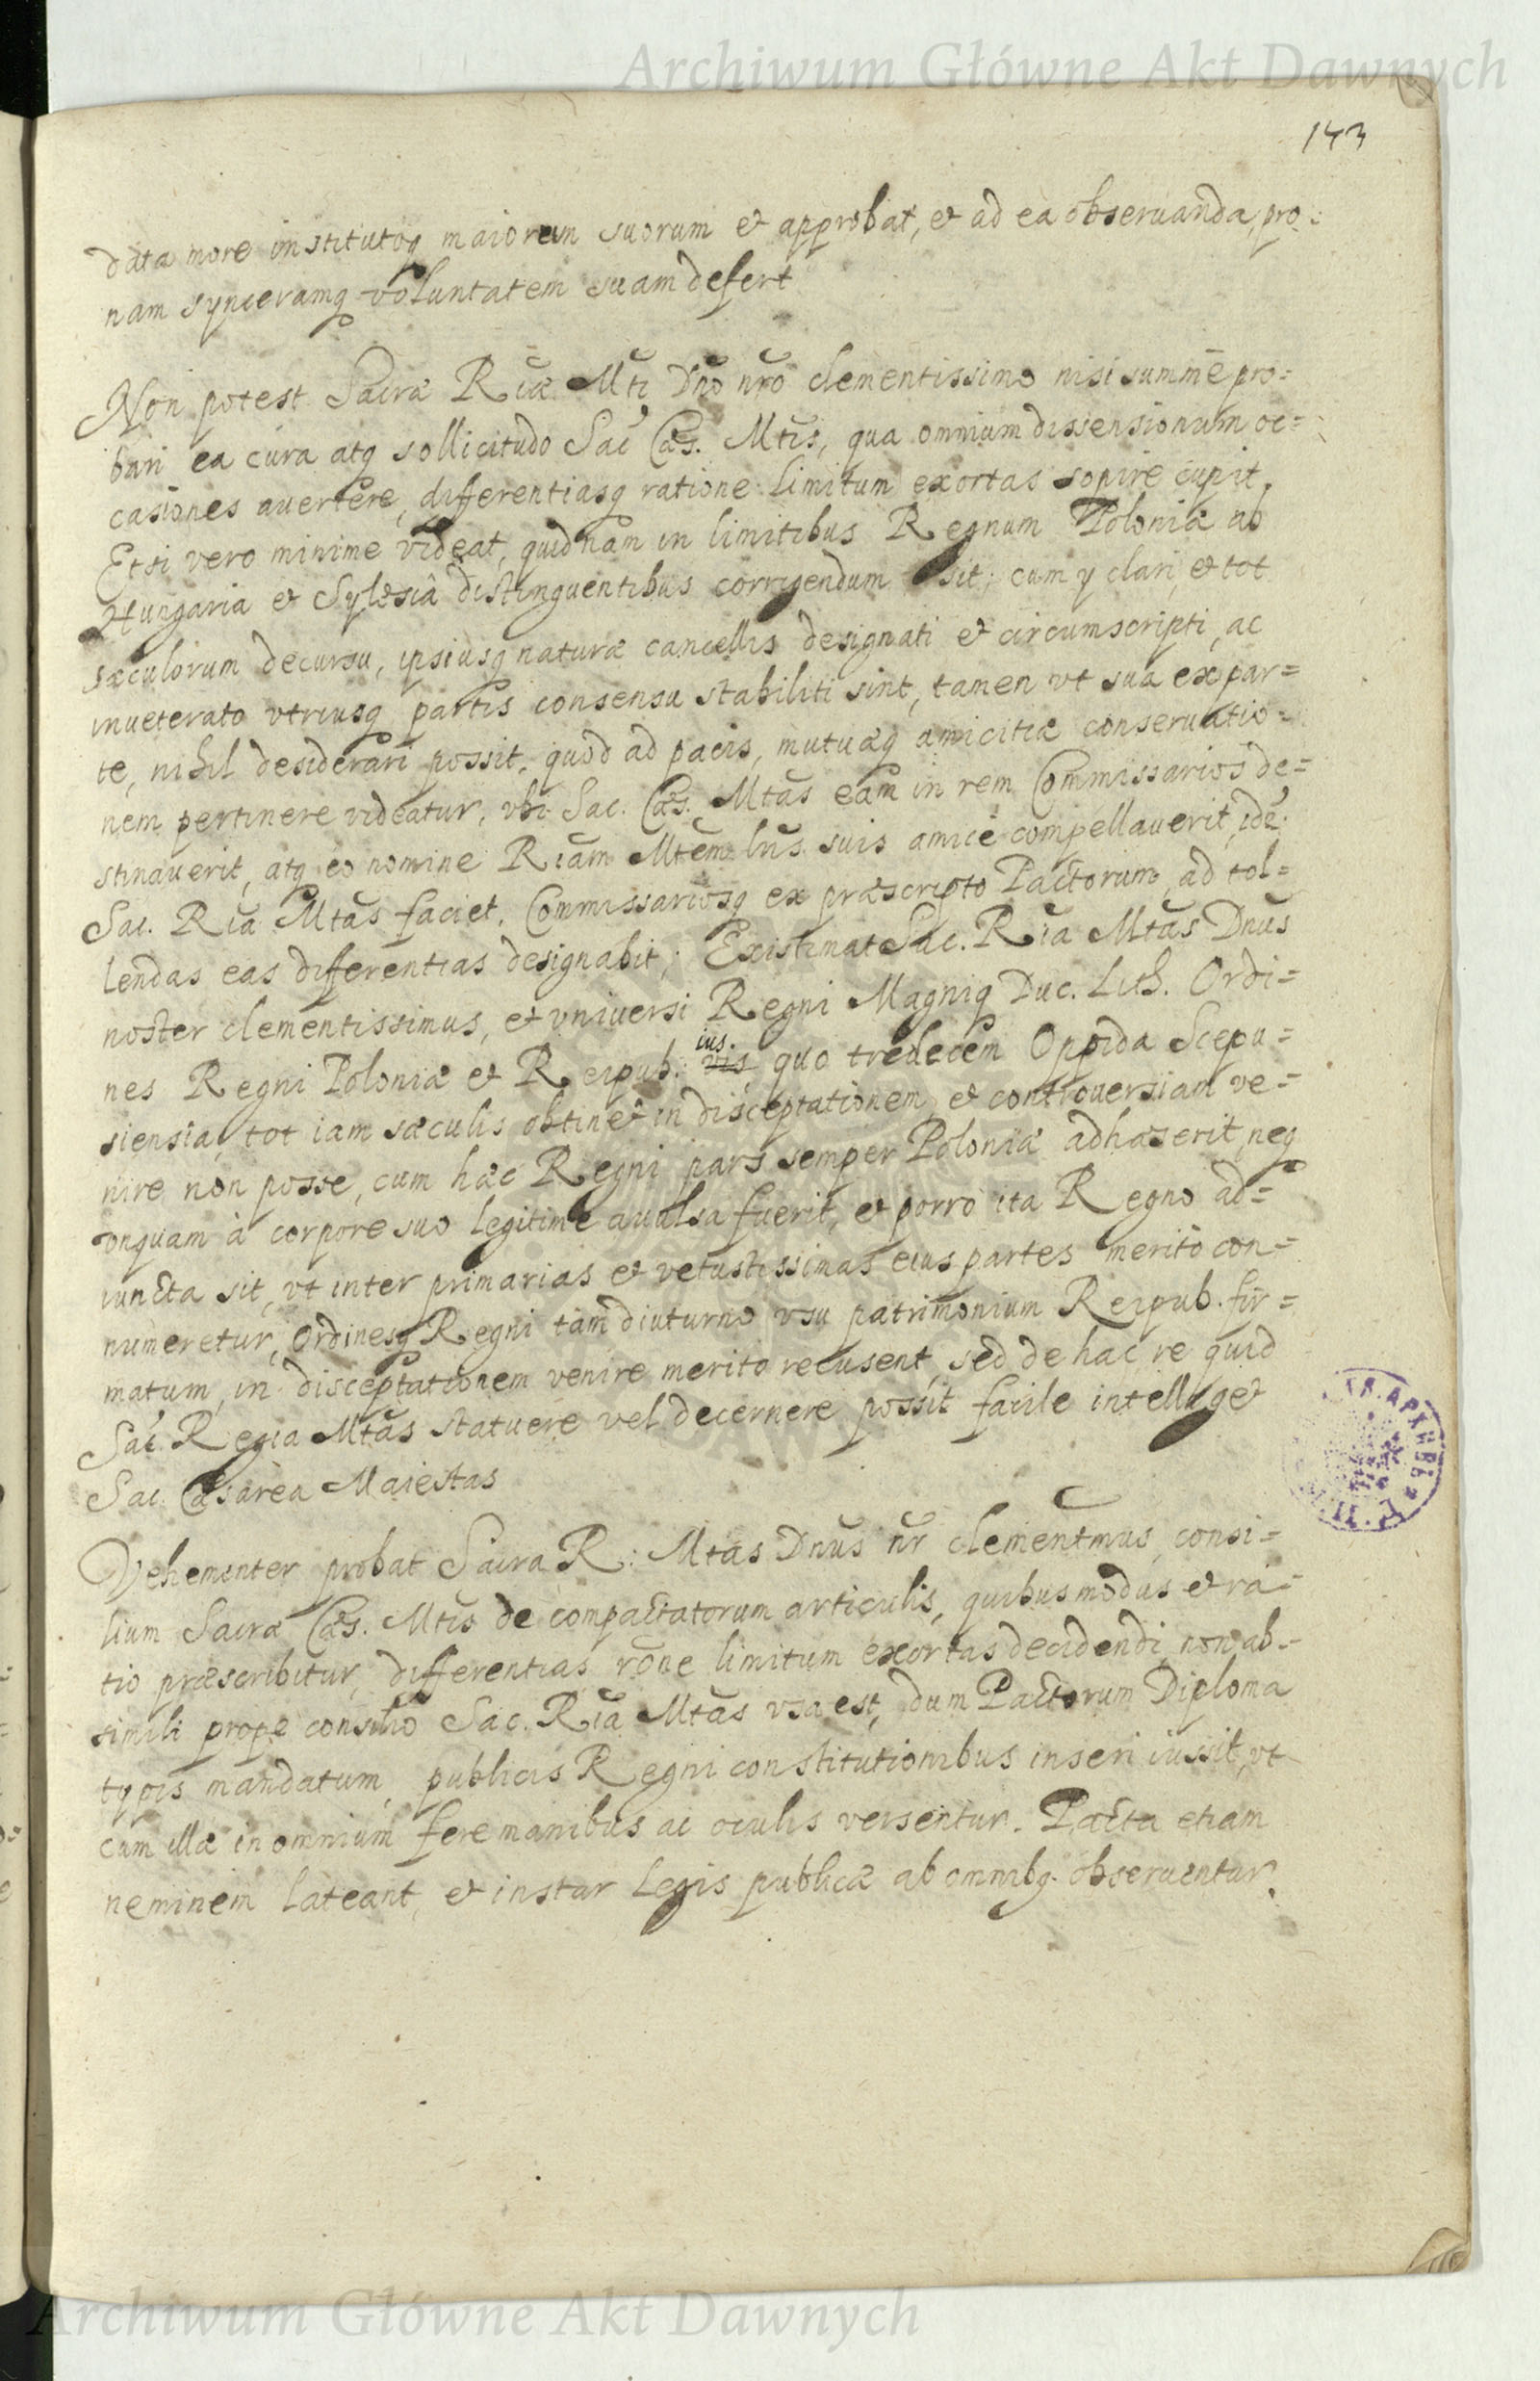 Archiwum Główne Akt Dawnych
143
data more institutoq maiorum suorum et approbat, et ad ea obseruanda, pro:
nam synceramq voluntatem suam defert
Non potest Sacræ Riæ Mti Dno nro clementissimo nisi summè pro=
bari ea cura atq sollicitudo Sac Cæs. Mtis, qua omnium dissensionum oc=
casiones auertere, differentiasq ratione limitum exortas sopire cupit.
Etsi vero minime videat, quidnam in limitibus Regnum Poloniæ ab
Hungaria et Sylesiâ distinguentibus corrigendum sit; cum y clari, et tot
sæculorum decursu, ipsiusq naturæ cancellis designati et circumscripti, ac
inueterato vtriusq partis consensu stabiliti sint, tamen vt sua ex par=
te, nihil desiderari possit, quod ad pacis, mutuæq amicitiæ conseruatio=
nem pertinere videatur, vbi Sac. Cæs. Mtas eam in rem Commissarios de=
stinauerit, atq eo nomine Riam Mtem lris suis amicè compellauerit, idē
Sac. Ria Mtas faciet, Commissariosq ex præscripto Pactorum, ad tol=
lendas eas differentias designabit; Existimat Sac. Ria Mtas Dnus
noster clementissimus, et vniuersi Regni Magniq Duc. Lith. Ordi=
nes Regni Poloniæ et Reipub: vis ius. quo tredecem Oppida Scepu=
siensia, tot iam sæculis obtinet in disceptationem, et controuersiam ve=
nire non posse, cum hæc Regni pars semper Poloniæ adhæserit, neq
vnquam à corpore suo legitimè auulsa fuerit, et porrò ita Regno ad=
iuncta sit, vt inter primarias et vetustissimas eius partes meritò con=
numeretur, Ordinesq Regni tam diuturno vsu patrimonium Reipub. fir=
matum, in disceptationem venire merito recusent, sed de hac re quid
Sac. Regia Mtas statuere vel decernere possit facile intelliget
Sac. Cæsarea Maiestas
Vehementer probat Sacra R: Mtas Dnus nr clementmus, consi=
lium Sacræ Cæs. Mtis de compactatorum articulis, quibus modus et ra=
tio præscribitur, differentias rõne limitum exortas decidendi, non ab=
simili prope consilio Sac. Ria Mtas vsa est, dum Pactorum Diploma
typis mandatum, publicis Regni constitutionibus inseri iussit, vt
cum illæ in omnium fere manibus ac oculis versentur. Pacta etiam
neminem lateant, et instar Legis publicæ ab omnibq. obseruentur.
Archiwum Główne Akt Dawnych